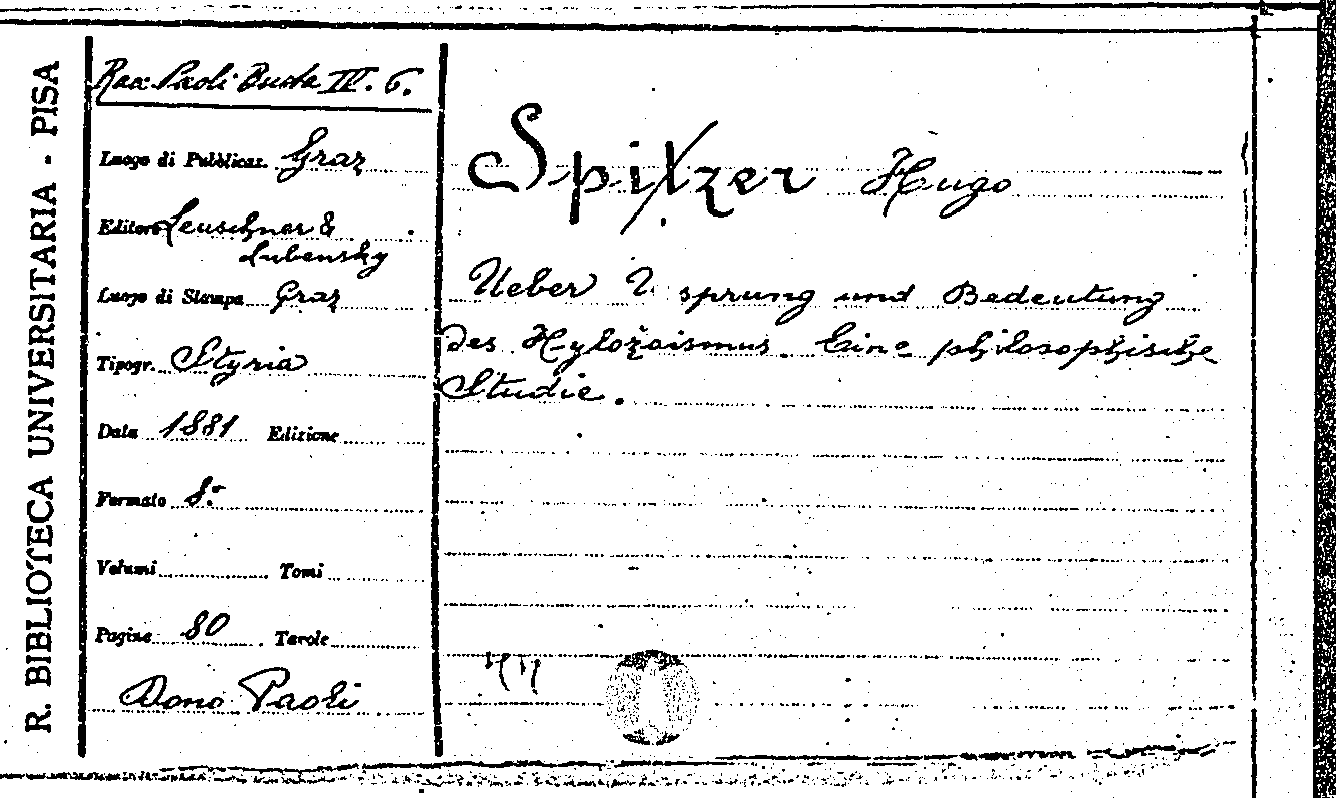 R. BIBLIOTECA UNIVERSITARIA - PISA
Rac. Paoli Busta IV. 6.
Luogo di Pubblicaz. Graz
Editore Leuschner &
Lubensky
Luogo di Stampa Graz
Tipogr. Styria
Data 1881 Edizione
Formato 8.º
Volumi Tomi
Pagine 80 Tavole
Dono Paoli
Spitzer Hugo
Ueber U sprung und Bedeutung
des Hylozoismus. Eine philosophische
Studie.